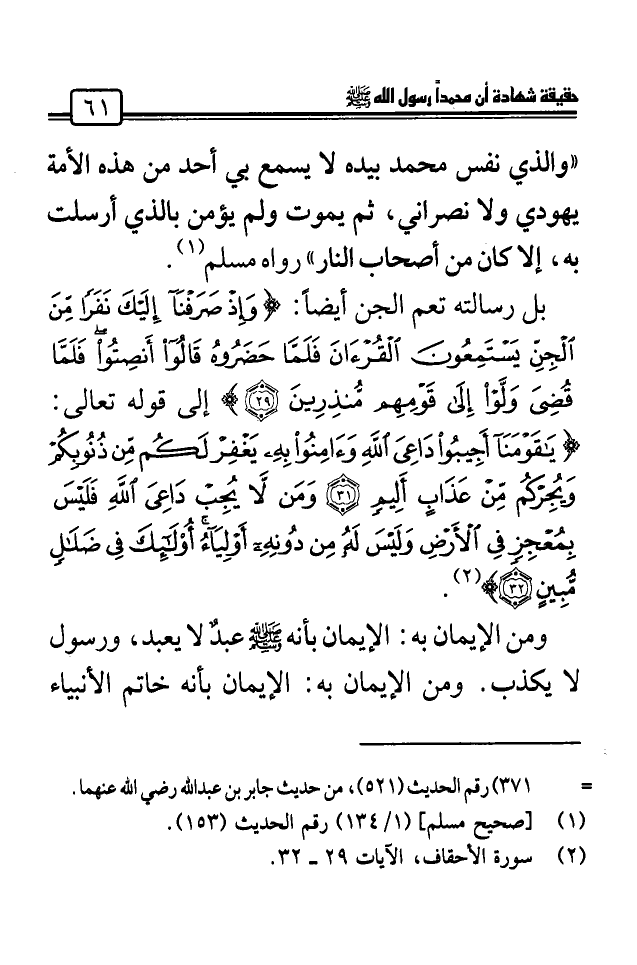 حقيقة شهادة أن محمداً رسول الله ﷺ
٦١
«والذي نفس محمد بيده لا يسمع بي أحد من هذه الأمة
يهودي ولا نصراني، ثم يموت ولم يؤمن بالذي أرسلت
به، إلا كان من أصحاب النار» رواه مسلم(١).
بل رسالته تعم الجن أيضاً: ﴿وَإِذْ صَرَفْنَآ إِلَيْكَ نَفَرًا مِّنَ
ٱلْجِنِّ يَسْتَمِعُونَ ٱلْقُرْءَانَ فَلَمَّا حَضَرُوهُ قَالُوٓا۟ أَنصِتُوا۟ ۖ فَلَمَّا
قُضِىَ وَلَّوْا۟ إِلَىٰ قَوْمِهِم مُّنذِرِينَ ٢٩﴾ إلى قوله تعالى:
﴿يَٰقَوْمَنَآ أَجِيبُوا۟ دَاعِىَ ٱللَّهِ وَءَامِنُوا۟ بِهِۦ يَغْفِرْ لَكُم مِّن ذُنُوبِكُمْ
وَيُجِرْكُم مِّنْ عَذَابٍ أَلِيمٍ ٣١ وَمَن لَّا يُجِبْ دَاعِىَ ٱللَّهِ فَلَيْسَ
بِمُعْجِزٍ فِى ٱلْأَرْضِ وَلَيْسَ لَهُۥ مِن دُونِهِۦٓ أَوْلِيَآءُ ۚ أُو۟لَٰٓئِكَ فِى ضَلَٰلٍ
مُّبِينٍ ٣٢﴾(٢).
ومن الإيمان به: الإيمان بأنه ﷺ عبدٌ لا يعبد، ورسول
لا يكذب. ومن الإيمان به: الإيمان بأنه خاتم الأنبياء
= ٣٧١) رقم الحديث (٥٢١)، من حديث جابر بن عبدالله رضي الله عنهما.
(١) [صحيح مسلم] (١/ ١٣٤) رقم الحديث (١٥٣).
(٢) سورة الأحقاف، الآيات ٢٩ ـ ٣٢.